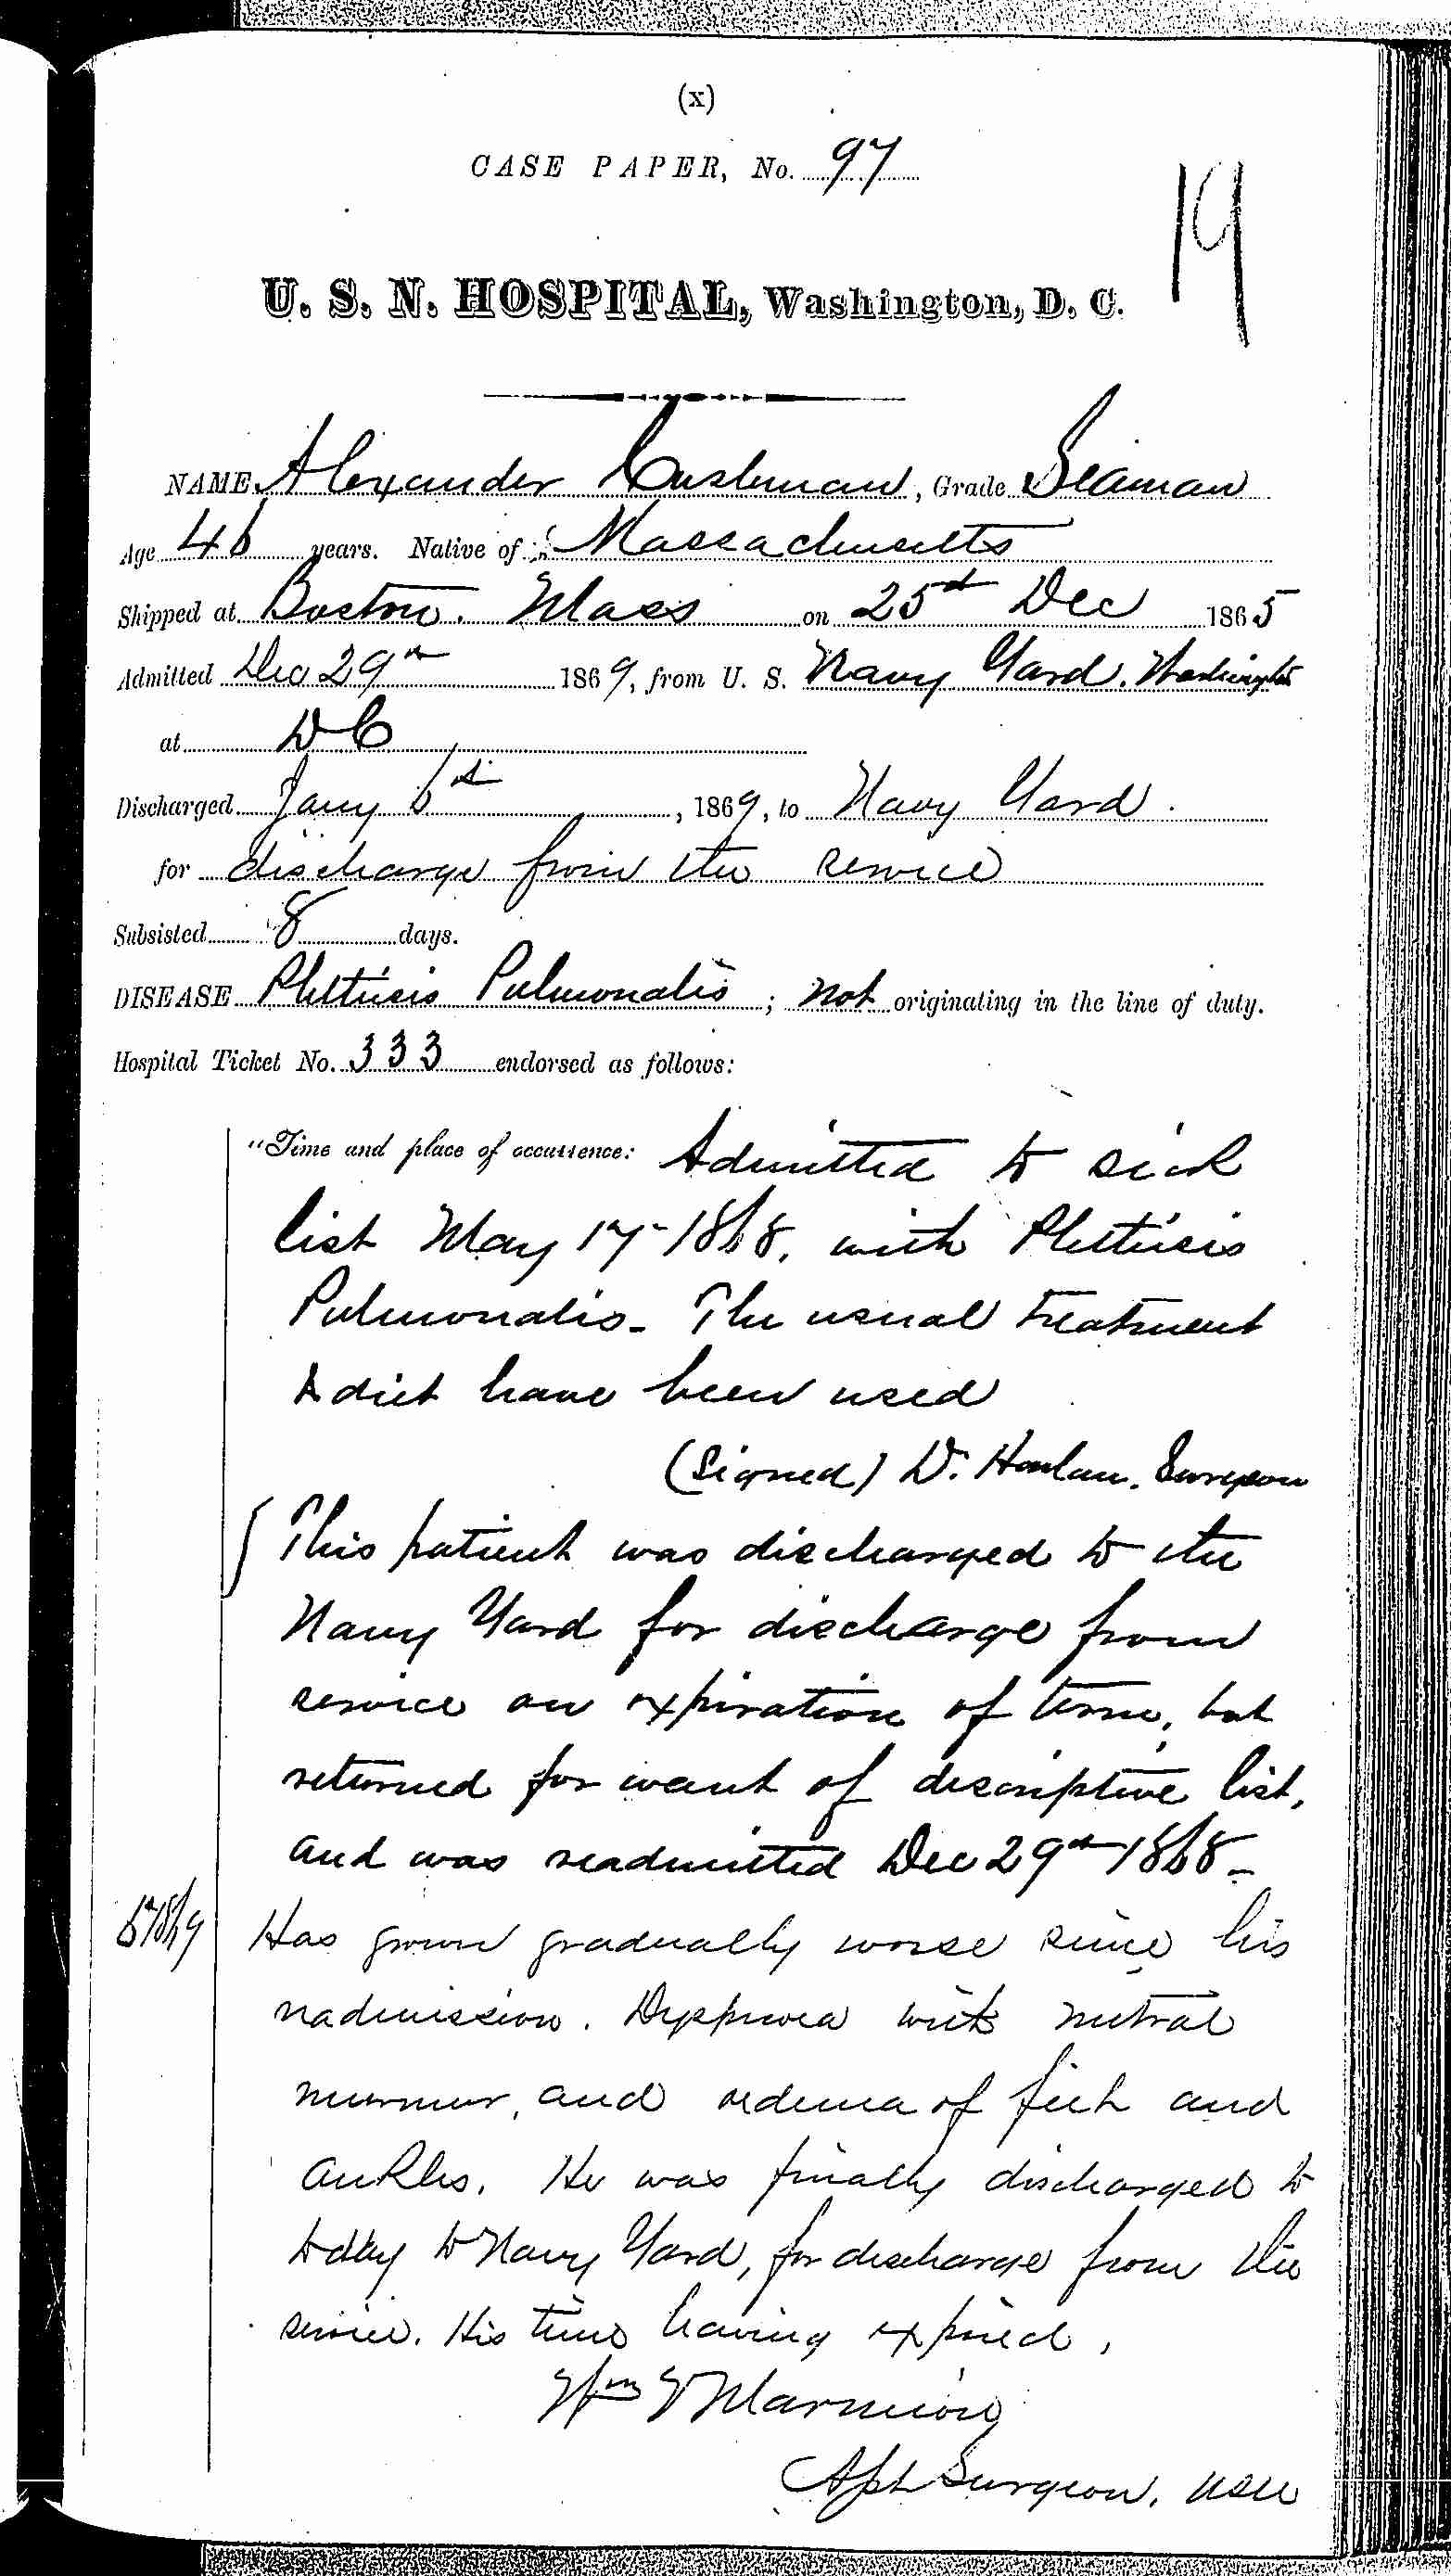 (x)
CASE PAPER, No. 97
19
U. S. N. HOSPITAL, Washington, D. C.
NAME Alexander Cushman, Grade Seaman
Age 46 years. Native of Massachusetts
Shipped at Boston. Mass on 25th Dec 1865
Admitted Dec 29th 1869, from U. S. Navy Yard. Washington
at DC
Discharged Jany 6th, 1869, to Navy Yard.
for discharge from the service
Subsisted 8 days.
DISEASE Phthisis Pulmonalis; not originating in the line of duty.
Hospital Ticket No. 333 endorsed as follows:
"Time and place of occurrence: Admitted to sick
list May 17-1868. with Phthisis
Pulmonalis. The usual treatment
& diet have been used
(Signed) D. Harlan. Surgeon
This patient was discharged to the
Navy Yard for discharge from
service on expiration of term, but
returned for want of descriptive list,
and was readmitted Dec 29th 1868-
Has grown gradually worse since his
readmission. Dyspnoea with mitral
murmur, and oedema of feet and
ankles. He was finally discharged to
today to Navy Yard, for discharge from the
service. His time having expired,
Wm Marmion
Asst Surgeon, USN